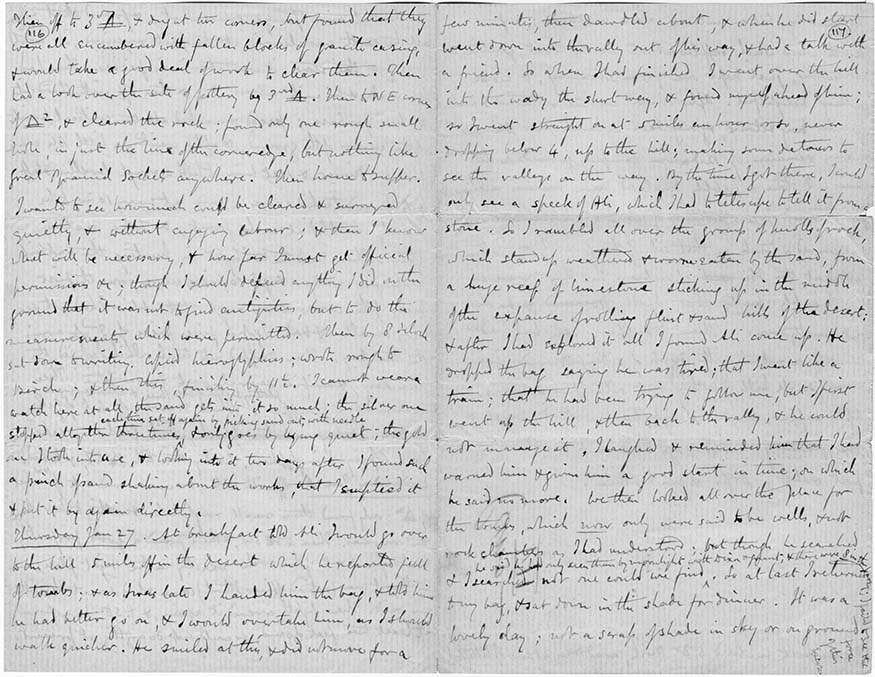 116
Then off to 3rd Δ, & dry at two corners, but found that they
were all encumbered with fallen blocks of granite casing,
& would take a good deal of work to clear them. Then
had a look over the site of pottery by 3rd Δ. Then to NE corner
of Δ2, & cleared the rock; found only one rough small
hole, in just the line of the corner edge, but nothing like
Great Pyramid Sockets anywhere. Then home to supper.
I want to see how much could be cleared & surveyed
quietly, & without engaging labour; & then I know
what will be necessary, & how far I must get official
permissions &c; though I should defend anything I did on the
ground that it was not to find antiquities, but to do the
measurements which were permitted. Then by 8 o'clock
sat down to writing. Copied hieroglyphics; wrote rough to
Birch; & then this, finishing by 11½. I cannot wear a
watch here at all, the sand gets into it so much; the silver one
each time set off again by picking sand out with needle
stopped altogether three times, & only goes by lying quiet; the gold
one I took into use, & looking into it two days after I found such
a pinch of sand shaking about the works, that I emptied it
& put it by again directly.
Thursday Jan 27. At breakfast told Ali I would go over
to the hill 5 miles off in the desert which he reported full
of tombs; & as I was late I handed him the bag, & told him
he had better go on, & I would overtake him, as I should
walk quicker. He smiled at this, & did not move for a
117
few minutes, then dawdled about, & when he did start
went down into the valley out of his way, & had a talk with
a friend. So when I had finished I went over the hill
into the wady the short way, & found myself ahead of him;
so I went straight on at 5 miles an hour or so, never
dropping below 4, up to the hill; making some detours to
see the valleys on the way. By the time I got there, I could
only see a speck of Ali, which I had to telescope to tell it from a
stone. So I rambled all over the group of knolls of rock,
which stand up weathered & worm eaten by the sand, from
a huge reef of limestone sticking up in the middle
of the expanse of rolling flint & sand hills of the desert;
& after I had explored it all I found Ali come up. He
dropped the bag saying he was tired; that I went like a
train; that he had been trying to follow me, but I first
went up the hill, & then back to the valley, & he could
not manage it, I laughed & reminded him that I had
warned him & given him a good start in time; on which
he said no more. We then looked all over the place for
the tombs, which now only were said to be wells, & not
rock chambers as I had understood; but though he searched
he said he had only seen them by moonlight with
& I searched not one could we find. So at last I returned
to my bag, & sat down in the shade for dinner. It was a
lovely day; not a scrap of shade in sky or on ground